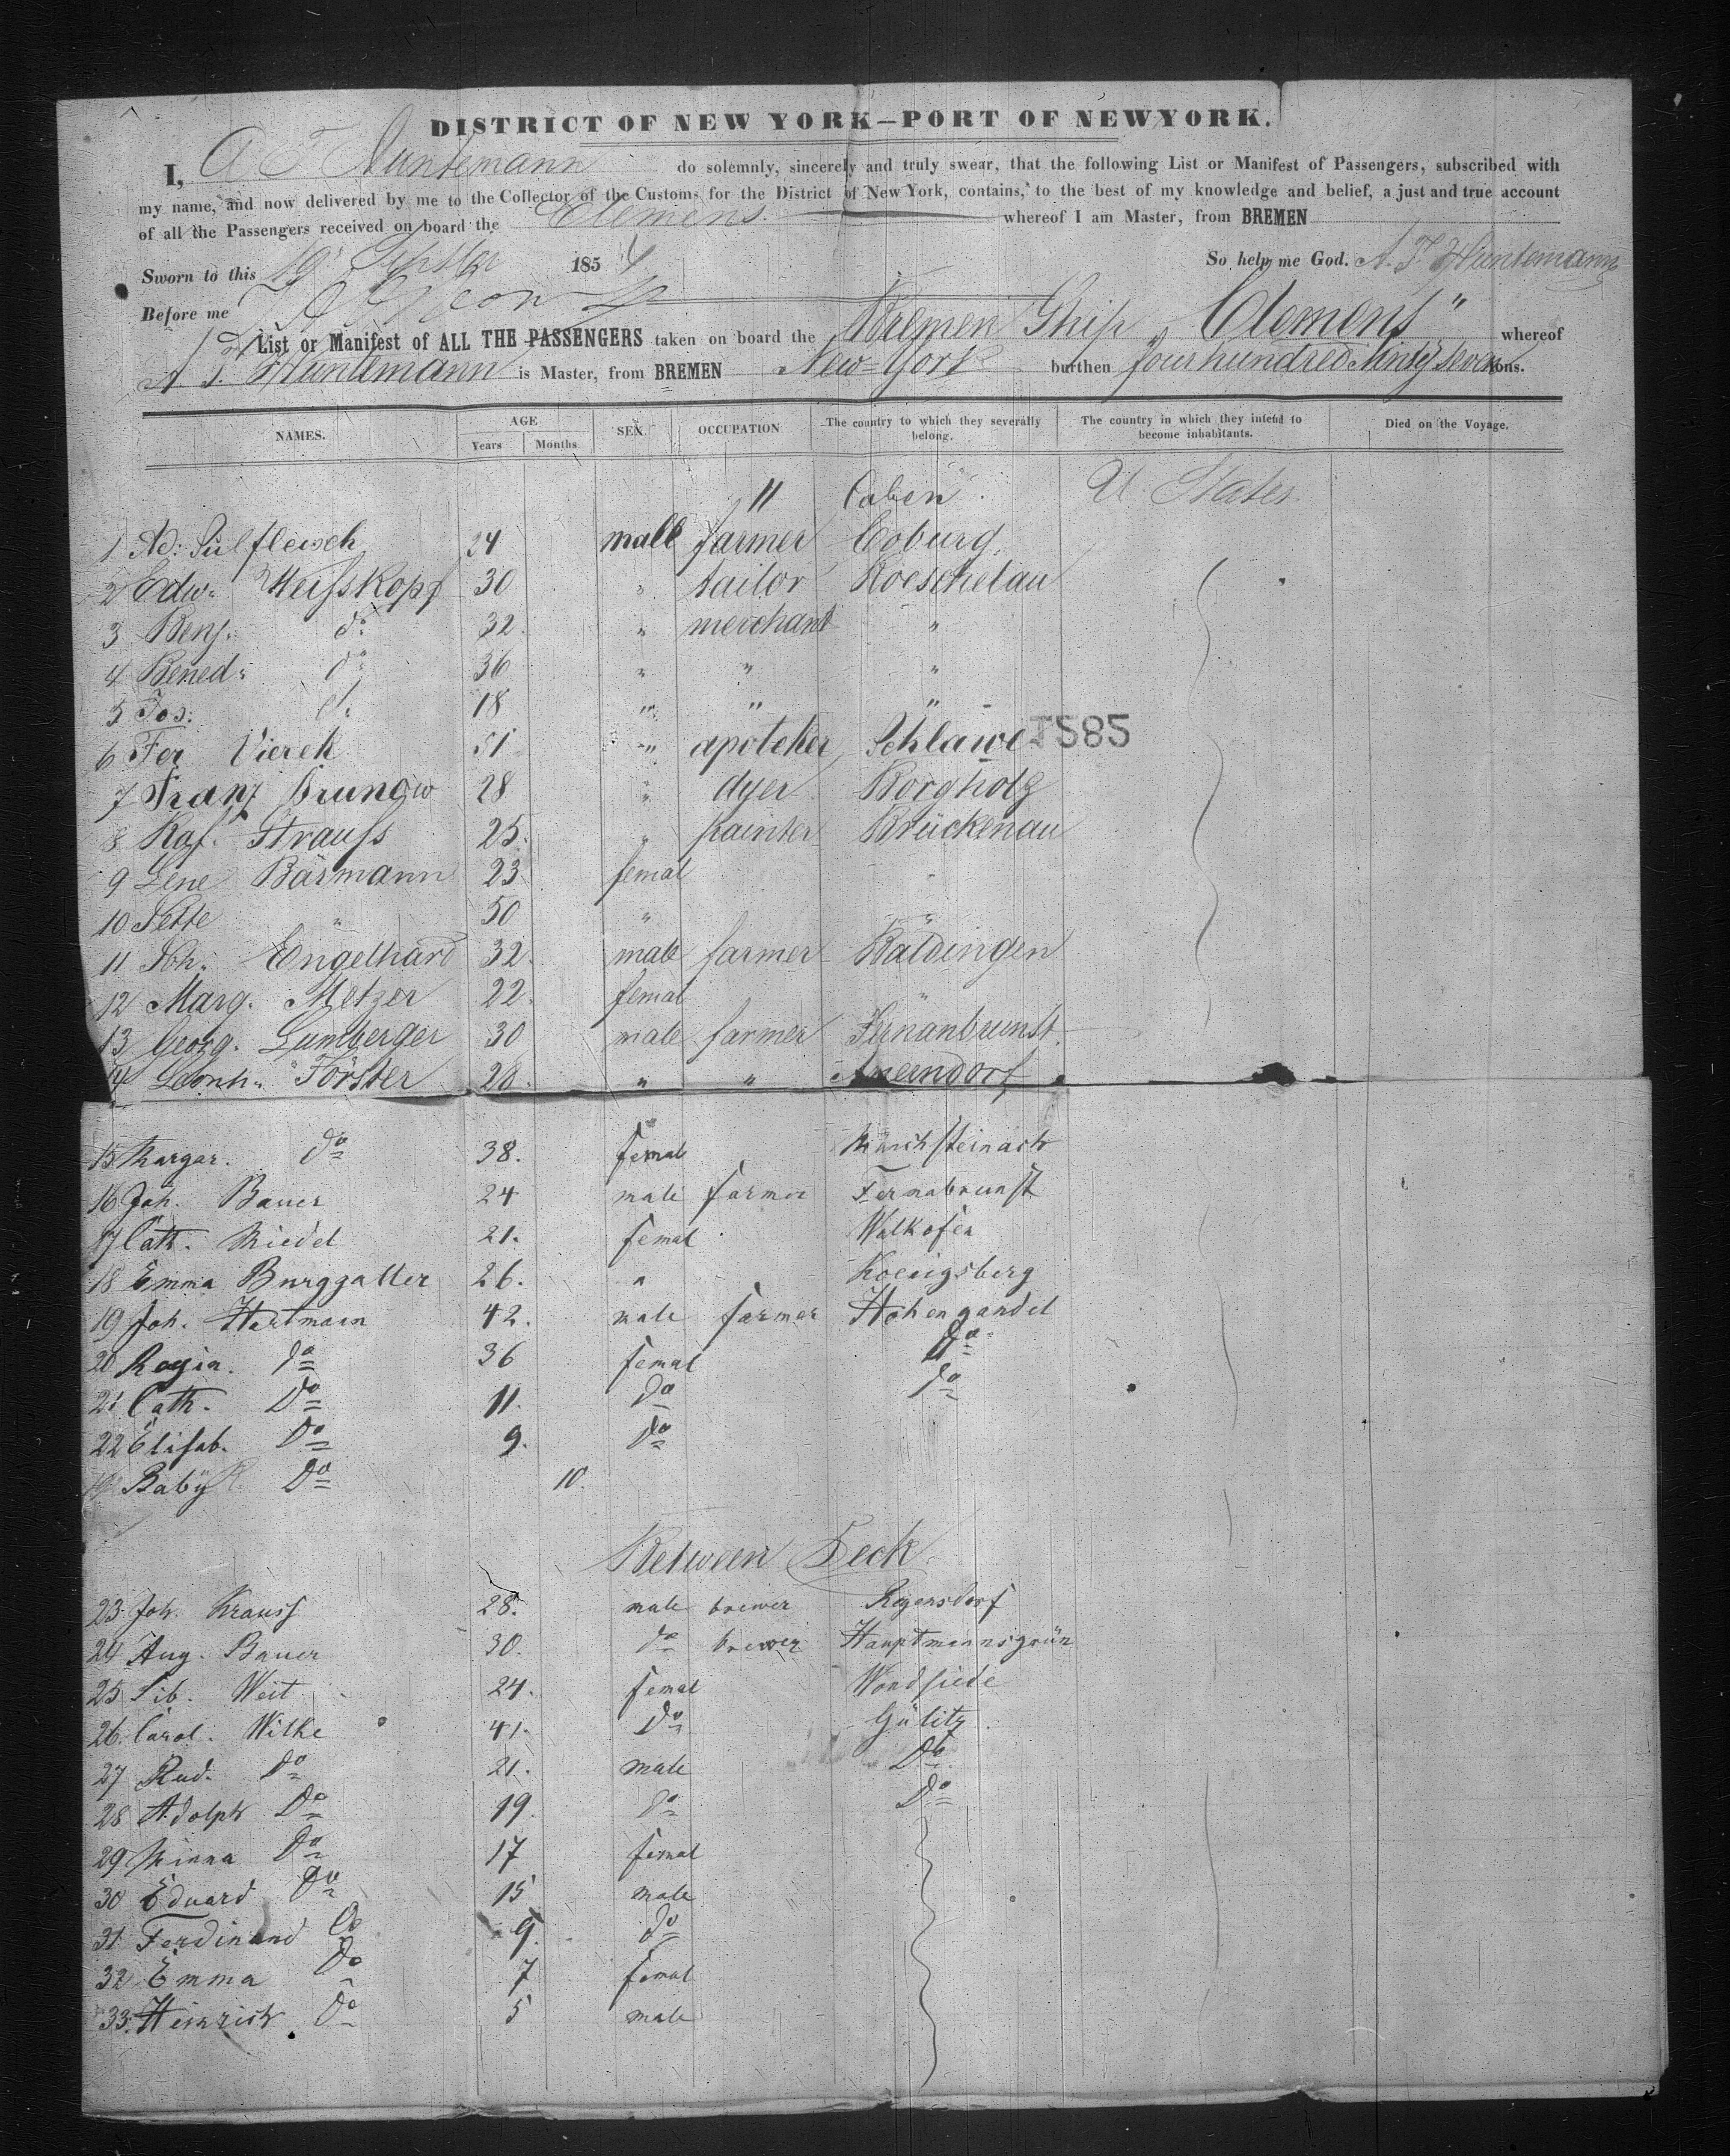 DISTRICT OF NEW YORK—PORT OF NEWYORK.
I, A F Huntemann do solemnly, sincerely and truly swear, that the following List or Manifest of Passengers, subscribed with
my name, and now delivered by me to the Collector of the Customs for the District of New York, contains, to the best of my knowledge and belief, a just and true account
of all the Passengers received on board the Clemens whereof I am Master, from BREMEN
Sworn to this 19 Septbr 1854 So help me God. A. F. Huntemann
Before me
List or Manifest of ALL THE PASSENGERS taken on board the Bremen Ship „Clemens" whereof
A F. Huntemann is Master, from BREMEN New-York burthen four hundred Ninty seven tons.
NAMES. AGE Years Months SEX OCCUPATION The country to which they severally belong. The country in which they intend to become inhabitants. Died on the Voyage.
" Caben". U States.
1 Ad: Sülfleisch 24 male farmer Coburg.
2 Edw: Weisskopf 30 " tailor Roeschelau
3 Benj: do 32. " merchant "
4 Bened: do 36 " " "
5 Jos: do 18 " " "
6 Fer Vierek 51 " apoteker Schlawe 1585
7 Franz Brunow 28 " dyer Borgholz
8 Raf. Strauss 25. " painter Brückenau
9 Lene Bärmann 23 femal "
10 Jette " 50 " "
11 Joh: Engelhard 32. male farmer Baldingen
12 Marg. Metzer 22. femal
13 Georg. Lumberger 30 male farmer Fernanbrunst.
14 Leonh: Förster 28. " " Amerndorf
15 Margar. do 38. femal Münchsteinach
16 Joh. Bauer 24 male farmer Fernabrunst
17 Cath. Riedel 21. femal Walkofen
18 Emma Burggaller 26. " Koenigsberg
19 Joh. Hartmann 42. male farmer Hohengandel
20 Regin. do 36 femal do
21 Cath. Do 11. do do
22 Elisab. Do 9. do
Baby Do 10.
Between Deck.
23 Joh. Krauss 28. male brewer Rogersdorf
24 Aug. Bauer 30. do brewer Hauptmannsgrün
25 Sib. Weit 24. femal Wondsiede
26. Carol. Wilke 41. Do Gülitz.
27 Rud. Do 21. male Do
28 Adolph Do 19. do Do
29 Minna Do 17 femal
30 Eduard Do 15 male
31 Ferdinand Do 9. do
32 Emma Do 7 femal
33. Heinrich Do 5 male